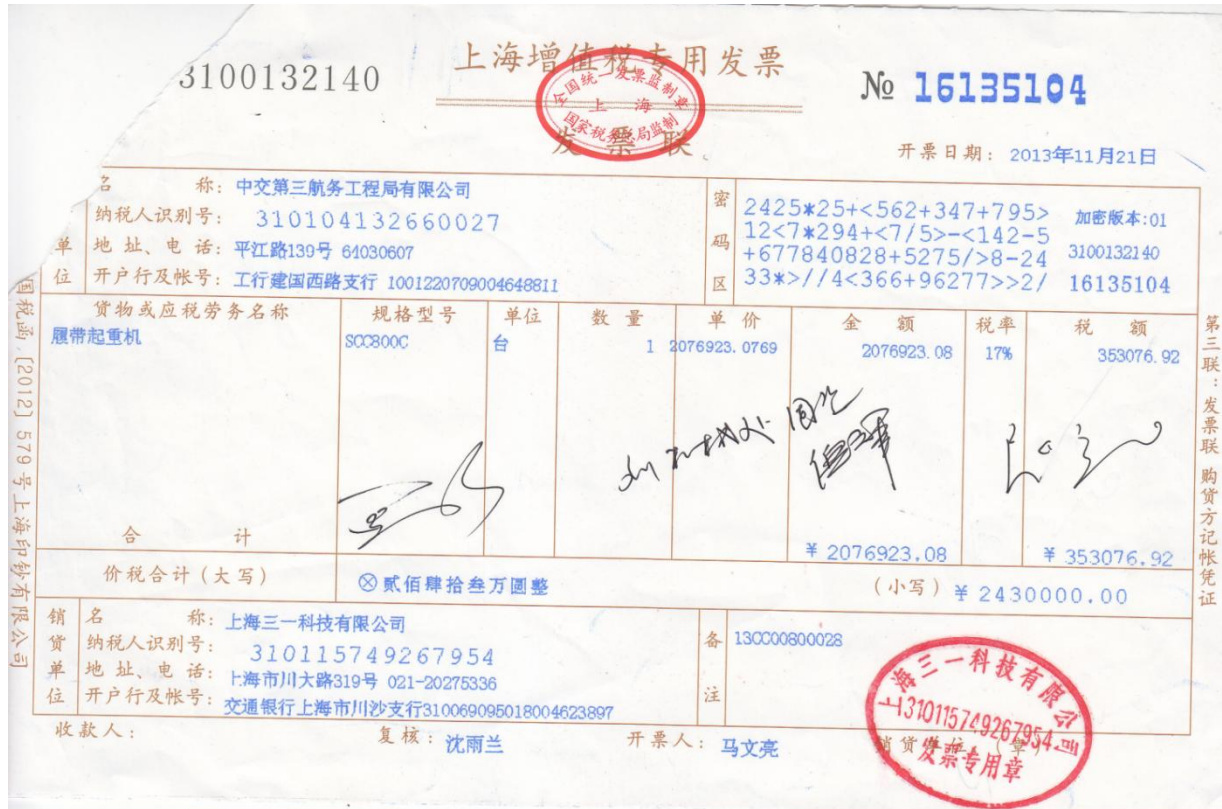 上海增值税专用发票
3100132140
№ 16135104
全国统一发票监制章
上 海
国家税务总局监制
发 票 联
开票日期: 2013年11月21日
名 称: 中交第三航务工程局有限公司
纳税人识别号: 310104132660027
单 地 址、电 话: 平江路139号 64030607
位 开户行及帐号: 工行建国西路支行 1001220709004648811
密码区
2425*25+<562+347+795> 加密版本:01
12<7*294+<7/5>-<142-5
+677840828+5275/>8-24 3100132140
33*>//4<366+96277>>2/ 16135104
货物或应税劳务名称 规格型号 单位 数 量 单 价 金 额 税率 税 额
履带起重机 SCC800C 台 1 2076923.0769 2076923.08 17% 353076.92
合 计 ¥ 2076923.08 ¥ 353076.92
价税合计(大写) ⊗贰佰肆拾叁万圆整 (小写) ¥ 2430000.00
销货单位
名 称: 上海三一科技有限公司
纳税人识别号: 310115749267954
地 址、电 话: 上海市川大路319号 021-20275336
开户行及帐号: 交通银行上海市川沙支行310069095018004623897
备注
13CC00800028
收款人: 复核: 沈雨兰 开票人: 马文亮 销货单位(章)
上海三一科技有限公司
310115749267954
发票专用章
国税函 [2012] 579号上海印钞有限公司
第三联:发票联 购货方记帐凭证